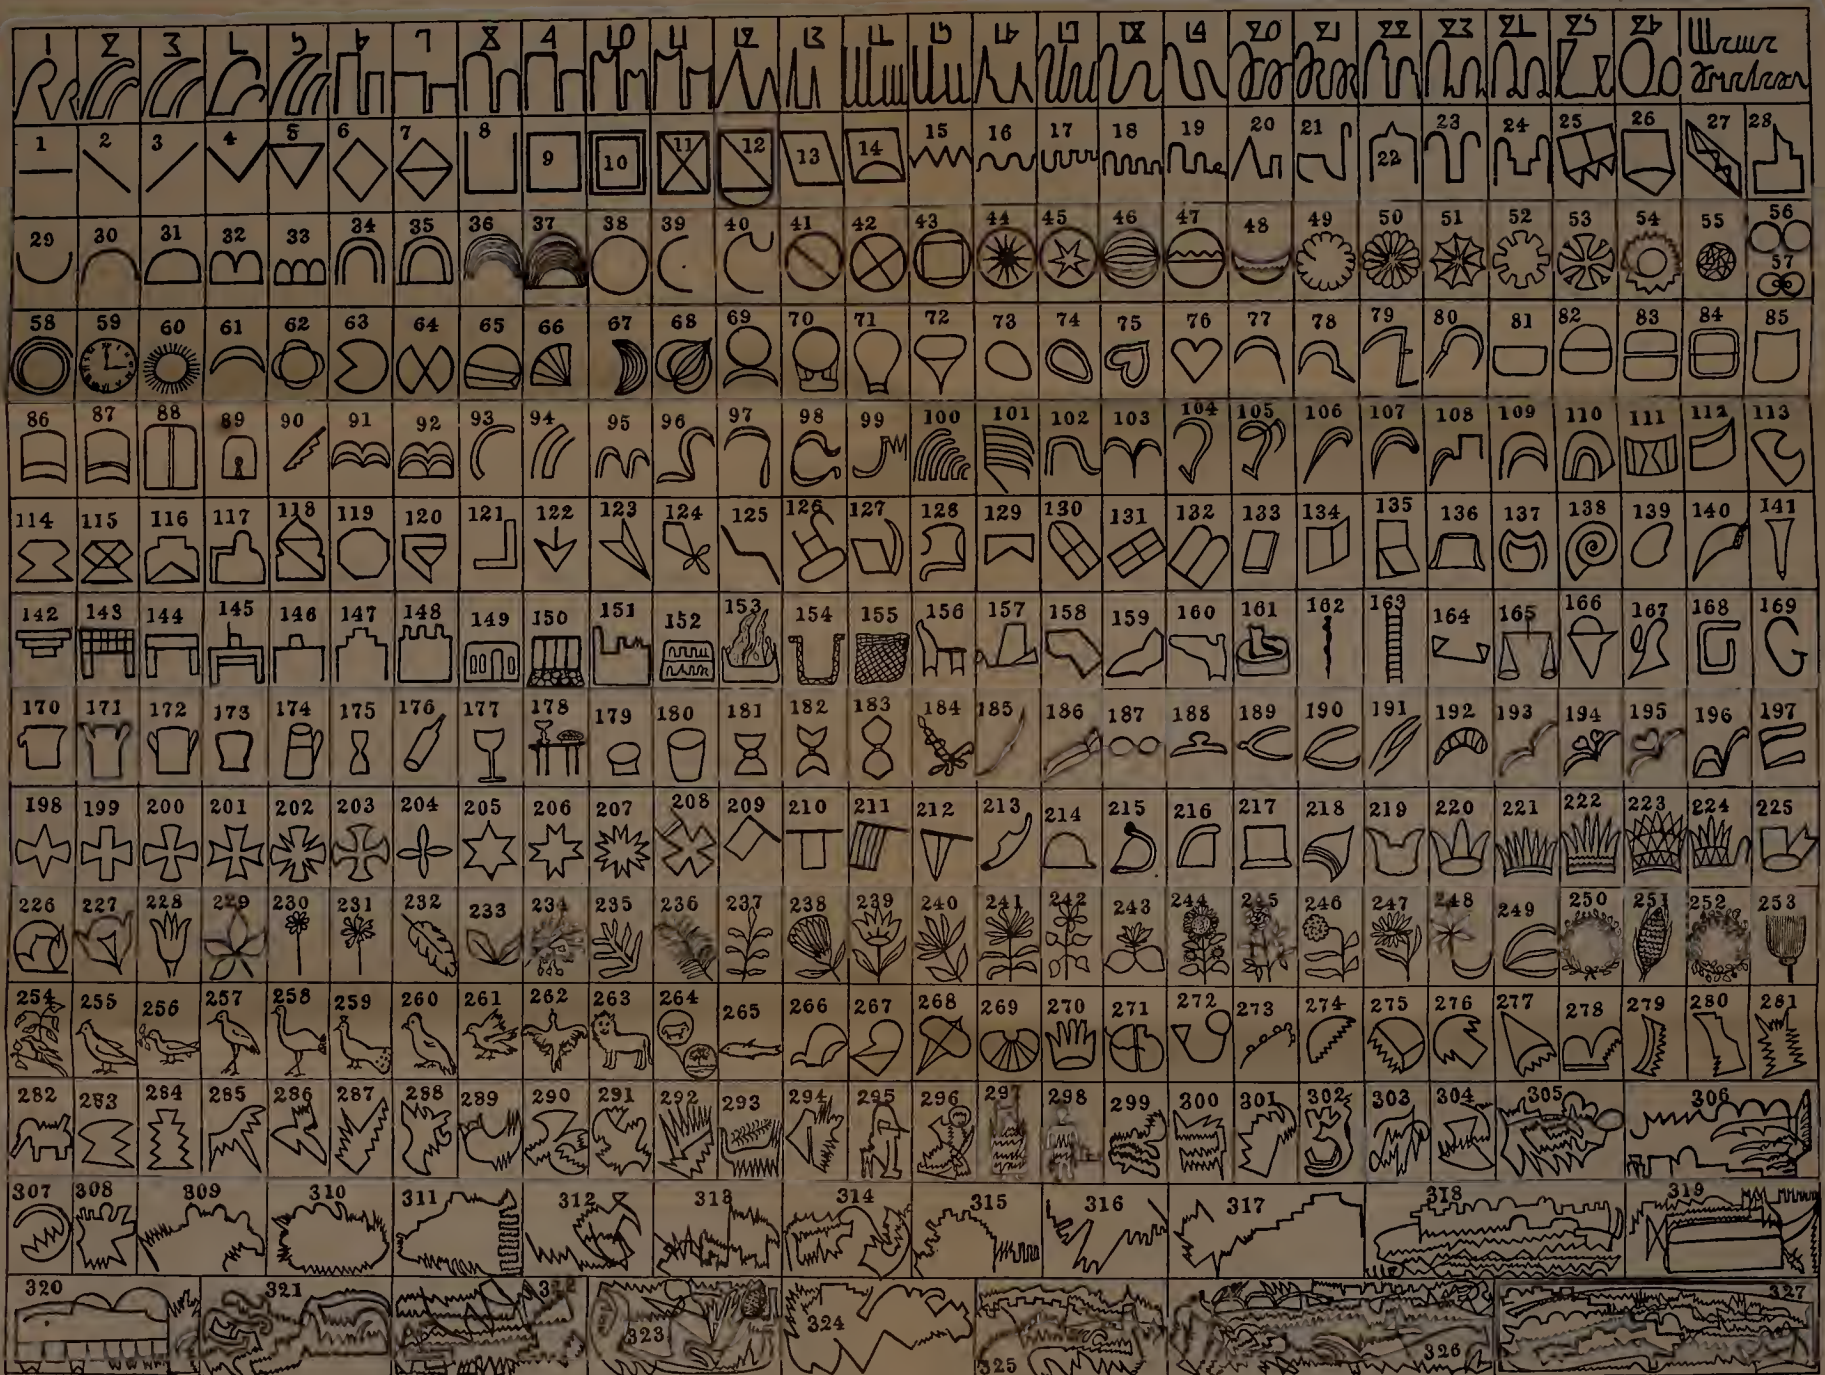 1 2 3 4 5 6 7 8 9 10 11 12 13 14 15 16 17 18 19 20 21 22 23 24 25 26 27 28
29 30 31 32 33 34 35 36 37 38 39 40 41 42 43 44 45 46 47 48 49 50 51 52 53 54 55 56
57
58 59 60 61 62 63 64 65 66 67 68 69 70 71 72 73 74 75 76 77 78 79 80 81 82 83 84 85
86 87 88 89 90 91 92 93 94 95 96 97 98 99 100 101 102 103 104 105 106 107 108 109 110 111 112 113
114 115 116 117 118 119 120 121 122 123 124 125 126 127 128 129 130 131 132 133 134 135 136 137 138 139 140 141
142 143 144 145 146 147 148 149 150 151 152 153 154 155 156 157 158 159 160 161 162 163 164 165 166 167 168 169
170 171 172 173 174 175 176 177 178 179 180 181 182 183 184 185 186 187 188 189 190 191 192 193 194 195 196 197
198 199 200 201 202 203 204 205 206 207 208 209 210 211 212 213 214 215 216 217 218 219 220 221 222 223 224 225
226 227 228 229 230 231 232 233 234 235 236 237 238 239 240 241 242 243 244 245 246 247 248 249 250 251 252 253
254 255 256 257 258 259 260 261 262 263 264 265 266 267 268 269 270 271 272 273 274 275 276 277 278 279 280 281
282 283 284 285 286 287 288 289 290 291 292 293 294 295 296 297 298 299 300 301 302 303 304 305 306
307 308 309 310 311 312 313 314 315 316 317 318 319
320 321 322 323 324 325 326 327